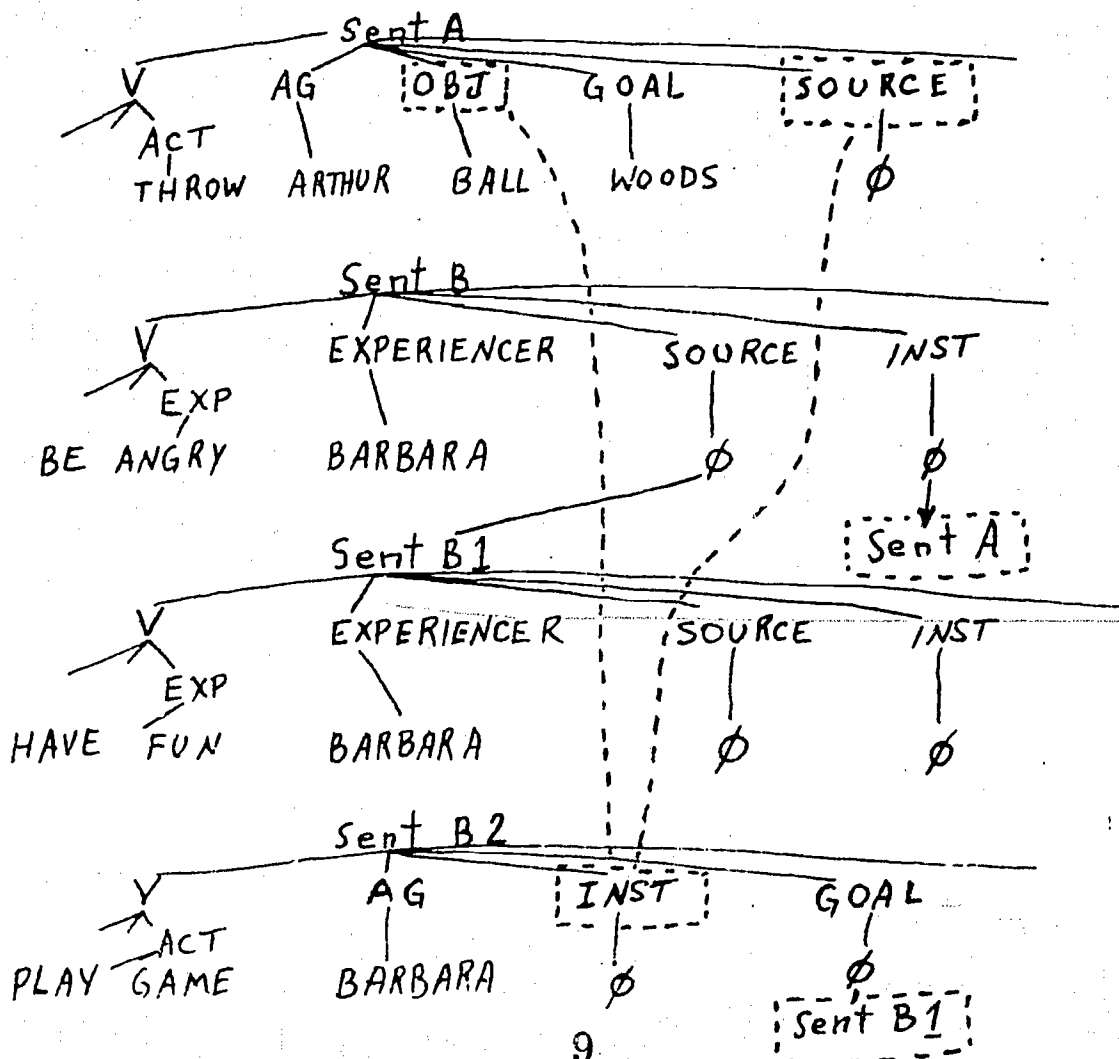 Sent A
V AG OBJ GOAL SOURCE
ACT
THROW ARTHUR BALL WOODS ∅
Sent B
V EXPERIENCER SOURCE INST
EXP
BE ANGRY BARBARA ∅ ∅
Sent A
Sent B1
V EXPERIENCER SOURCE INST
EXP
HAVE FUN BARBARA ∅ ∅
Sent B2
V AG INST GOAL
ACT
PLAY GAME BARBARA ∅ ∅
Sent B1
9